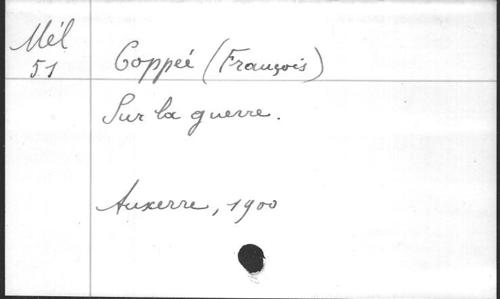 Mél
51
Coppée (François)
Sur la guerre.
Auxerre, 1900